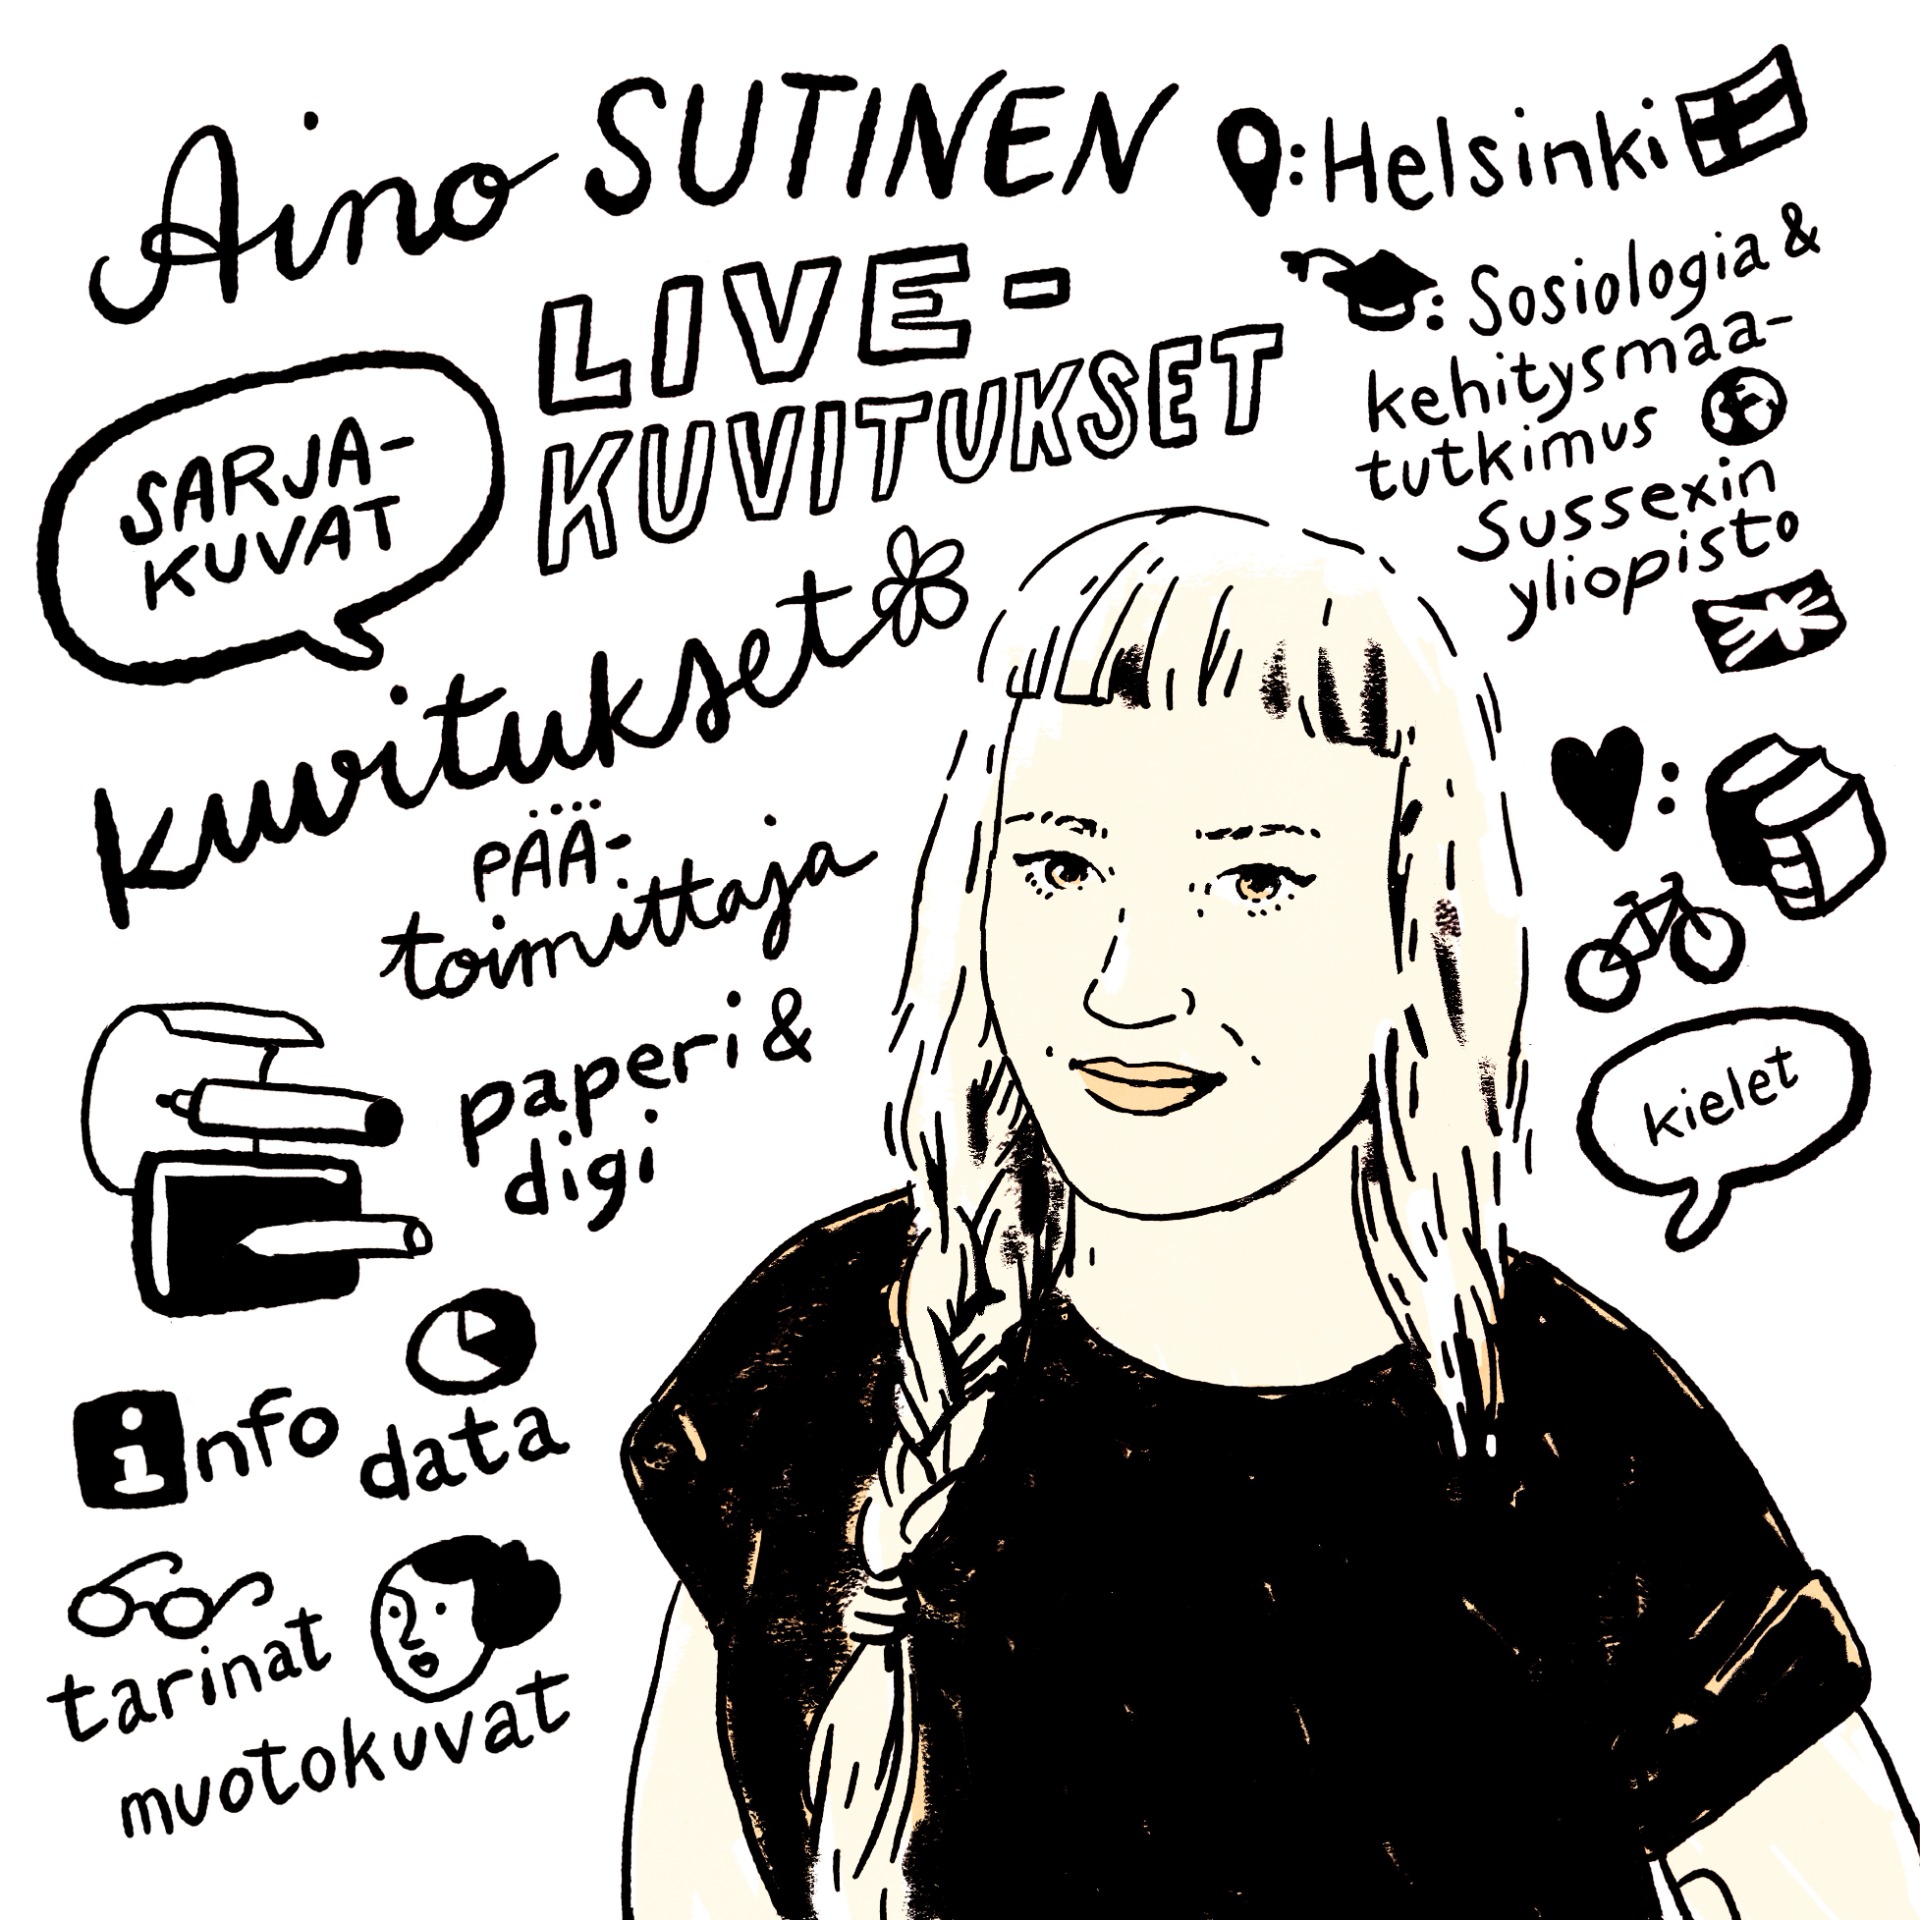 Aino SUTINEN
: Helsinki
LIVE-
KUVITUKSET
: Sosiologia &
kehitysmaa-
tutkimus
Sussexin
yliopisto
SARJA-
KUVAT
kuvitukset
PÄÄ-
toimittaja
paperi &
digi
:
kielet
info
data
tarinat
muotokuvat